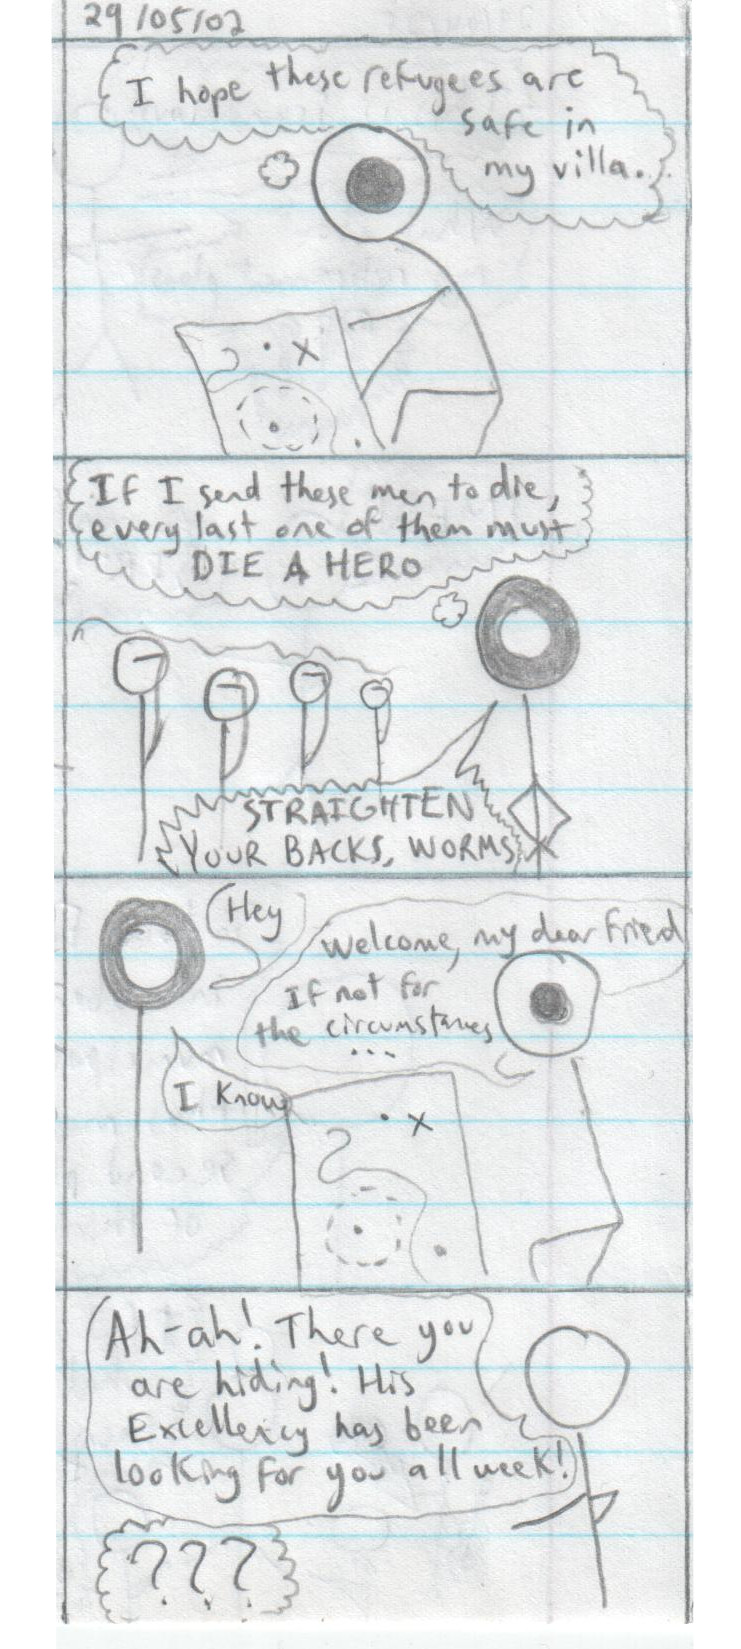 29/05/02
I hope these refugees are
safe in
my villa.
x
If I send these men to die,
every last one of them must
DIE A HERO
STRAIGHTEN
YOUR BACKS, WORMS
Hey
Welcome, my dear friend
If not for
the circumstances
...
I know
x
Ah-ah! There you
are hiding! His
Excellency has been
looking for you all week!
???